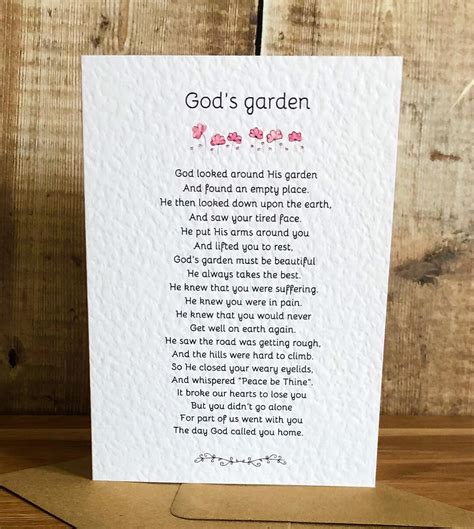 God's garden
God looked around His garden
And found an empty place.
He then looked down upon the earth,
And saw your tired face.
He put His arms around you
And lifted you to rest,
God's garden must be beautiful
He always takes the best.
He knew that you were suffering.
He knew you were in pain.
He knew that you would never
Get well on earth again.
He saw the road was getting rough,
And the hills were hard to climb.
So He closed your weary eyelids,
And whispered "Peace be Thine".
It broke our hearts to lose you
But you didn't go alone
For part of us went with you
The day God called you home.